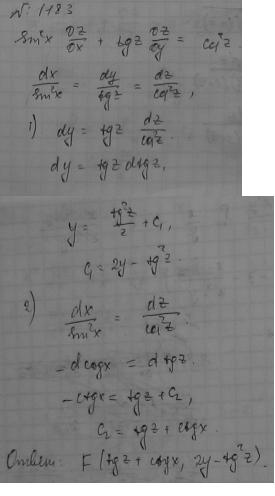 №: 1183
sin²x ∂z/∂x + tgz ∂z/∂y = cos²z
dx/sin²x = dy/tgz = dz/cos²z,
1) dy = tgz dz/cos²z.
dy = tgz dtgz,
y = tg²z/2 + C₁,
C₁ = 2y - tg²z.
2) dx/sin²x = dz/cos²z.
-dctgx = dtgz.
-ctgx = tgz + C₂,
C₂ = tgz + ctgx.
Ответ: F(tgz + ctgx, 2y - tg²z).